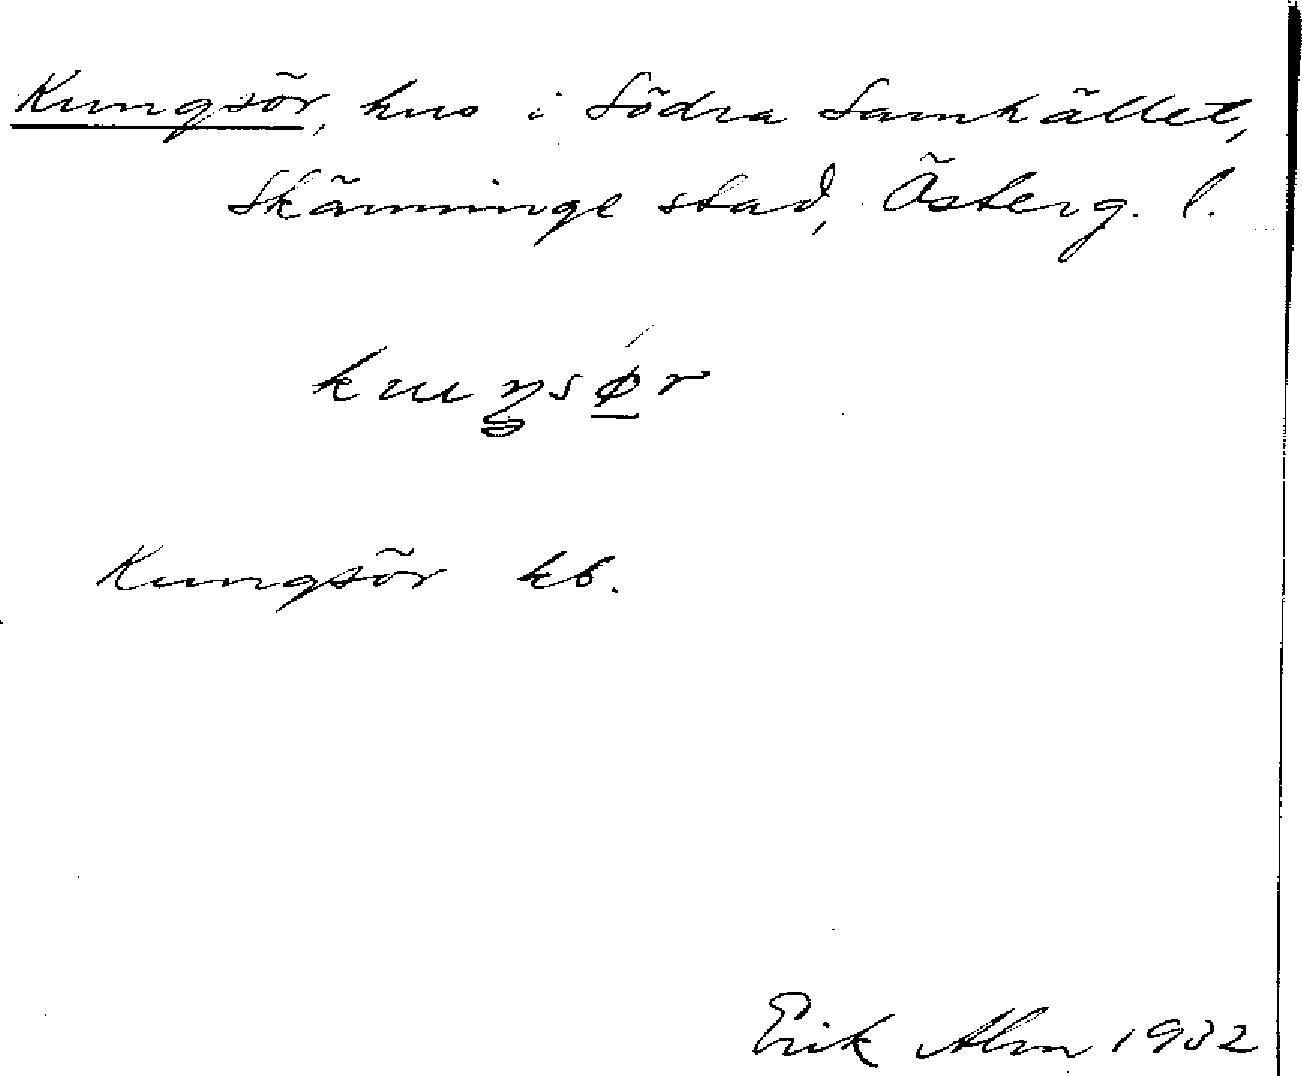 Kungsör, hus i Södra Samhället,
Skänninge stad, Österg. l.
Kungsör kb.
Erik Alm 1932